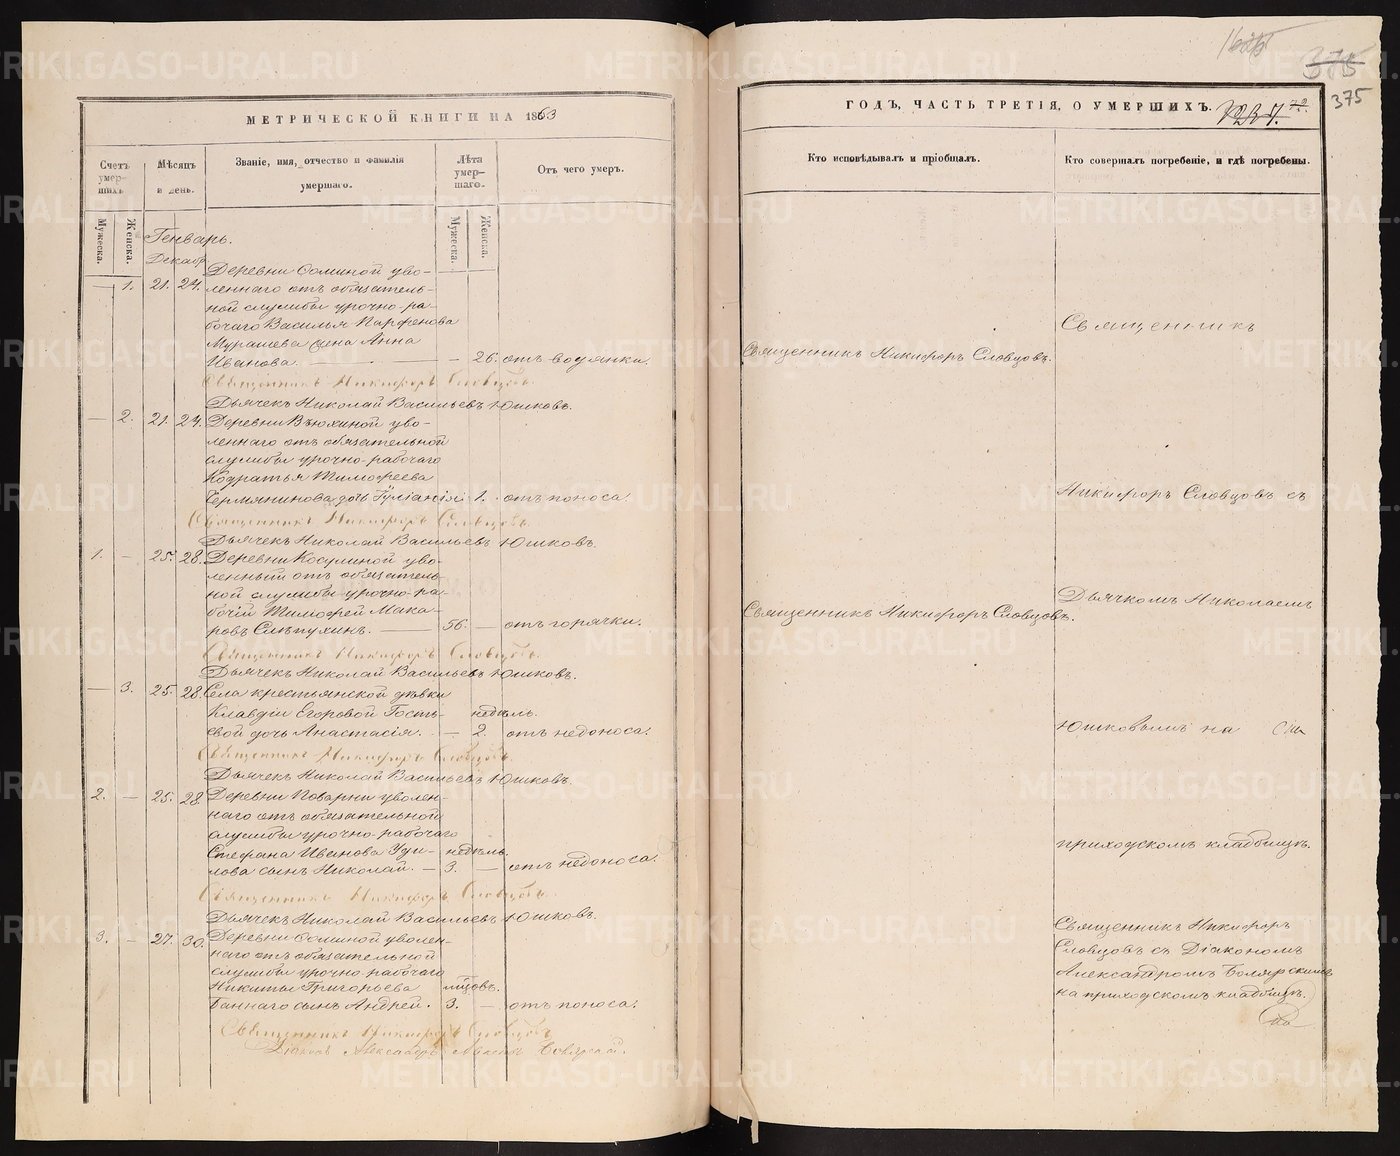 METRIKI.GASO-URAL.RU
МЕТРИЧЕСКОЙ КНИГИ НА 1863
Счетъ умер-шихъ
Мѣсяцъ и день.
Званіе, имя, отчество и фамилія умершаго.
Лѣта умер-шаго.
Отъ чего умеръ.
Мужеска.
Женска.
Мужеска.
Женска.
Генварь.
Декабр.
Деревни Соминой уво-
— 1. 21. 24. леннаго отъ обязатель-
ной службы урочно-ра-
бочаго Василья Парфенова
Мурашева жена Анна
Иванова. — 26. отъ водянки.
Священникъ Никифоръ Словцовъ.
Дьячекъ Николай Васильевъ Юшковъ.
— 2. 21. 24. Деревни Вьюхиной уво-
леннаго отъ обязательной
службы урочно-рабочаго
Кодратья Тимофеева
Чермянинова дочь Іуліанія 1. отъ поноса.
Священникъ Никифоръ Словцовъ.
Дьячекъ Николай Васильевъ Юшковъ.
1. — 25. 28. Деревни Косулиной уво-
ленный отъ обязатель-
ной службы урочно-ра-
бочій Тимофей Мака-
ровъ Слѣпухинъ. — 56. — отъ горячки.
Священникъ Никифоръ Словцовъ.
Дьячекъ Николай Васильевъ Юшковъ.
— 3. 25. 28. Села крестьянской дѣвки
Клавдіи Егоровой Гость- недѣль.
евой дочь Анастасія. — 2. отъ недоноса.
Священникъ Никифоръ Словцовъ.
Дьячекъ Николай Васильевъ Юшковъ.
2. — 25. 28. Деревни Поварни уволен-
наго отъ обязательной
службы урочно-рабочаго
Стефана Иванова Уди- недѣль.
лова сынъ Николай. — 3. — отъ недоноса.
Священникъ Никифоръ Словцовъ.
Дьячекъ Николай Васильевъ Юшковъ.
3. — 27. 30. Деревни Соминой уволен-
наго отъ обязательной
службы урочно-рабочаго
Никиты Григорьева
Баннаго сынъ Андрей. 3. — отъ поноса.
Священникъ Никифоръ Словцовъ
Діаконъ Александръ Боярскій.
375
375
ГОДЪ, ЧАСТЬ ТРЕТІЯ, О УМЕРШИХЪ.
Кто исповѣдывалъ и пріобщалъ.
Кто совершалъ погребеніе, и гдѣ погребены.
Священникъ
Священникъ Никифоръ Словцовъ.
Никифоръ Словцовъ съ
Дьячкомъ Николаемъ
Священникъ Никифоръ Словцовъ.
Юшковымъ на
приходскомъ кладбищѣ.
Священникъ Никифоръ
Словцовъ съ Діакономъ
Александромъ Боярскимъ
на приходскомъ кладбищѣ.